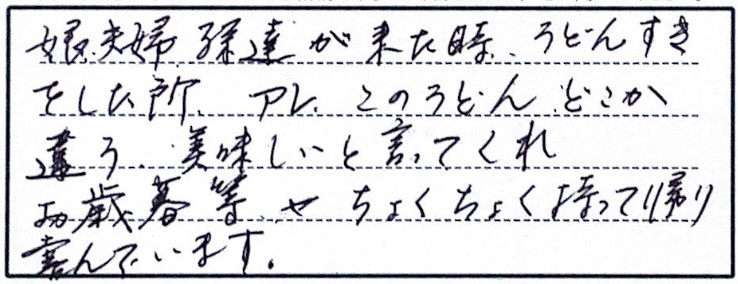 娘夫婦孫達が来た時、うどんすき
をした所、アレ、このうどんどこか
違う、美味しいと言ってくれ
お歳暮等、やちょくちょく持って帰り
喜んでいます。